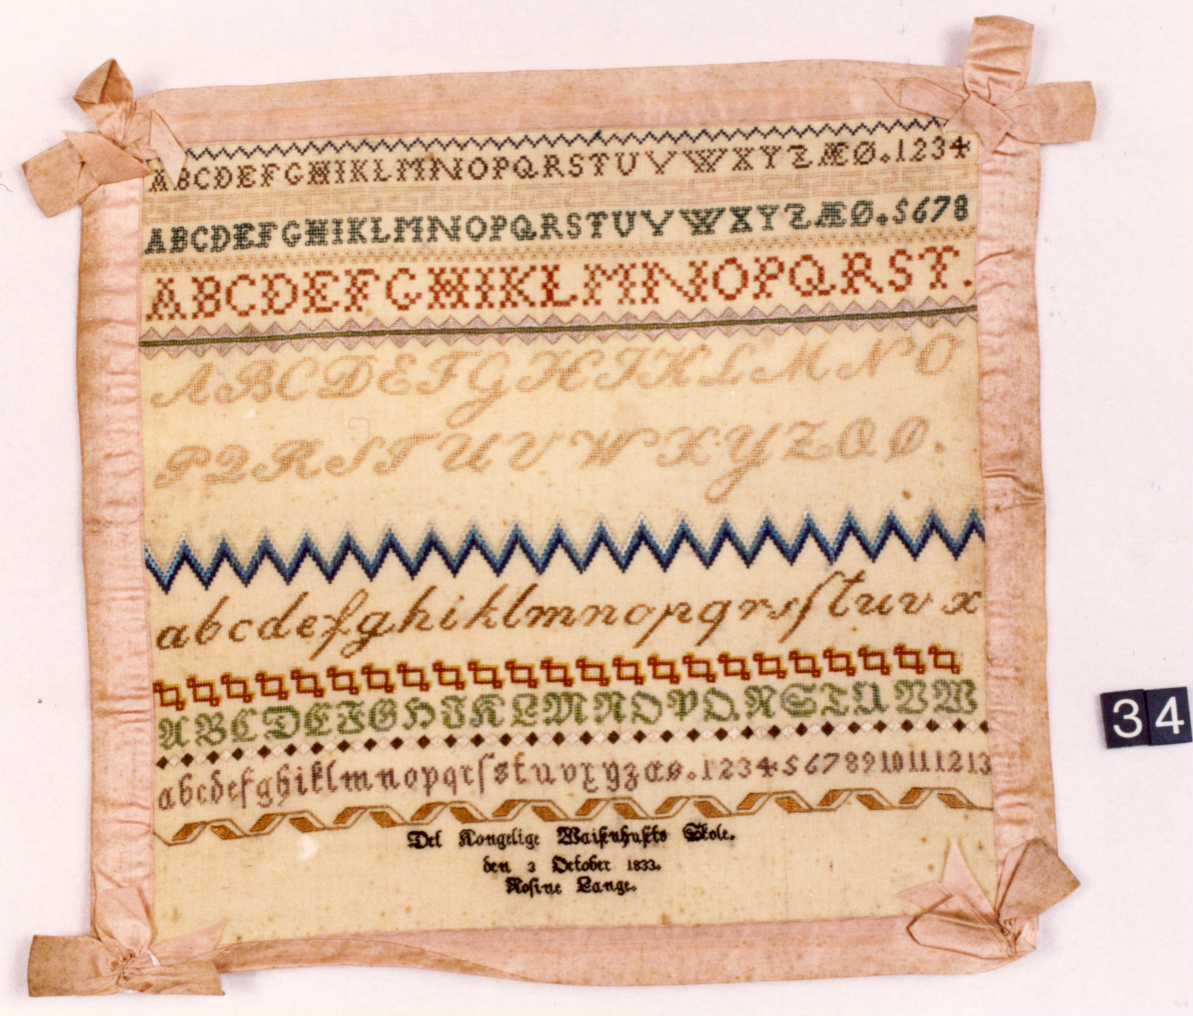 ABCDEFGHIKLMNOPQRSTUVWXYZÆØ.1234
ABCDEFGHIKLMNOPQRSTUVWXYZÆØ.5678
ABCDEFGHIKLMNOPQRST.
ABCDEFGHIKLMNO
PQRSTUVWXYZÖØ.
abcdefghiklmnopqrsſtuvx
ABCDEFGHIKLMNOPQRSTUVW
abcdefghiklmnopqrſstuvxyzæø.12345678910111213
34
Det Kongelige Waiſenhuſets Skole.
den 2 October 1833.
Roſine Lange.